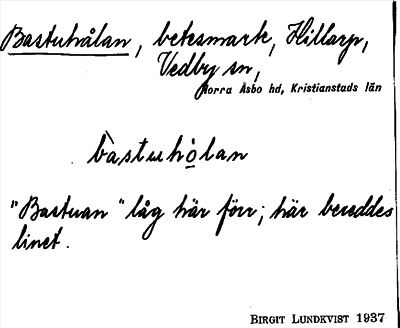 Bastuhålan, betesmark, Hillarp,
Vedby sn,
Norra Åsbo hd, Kristianstads län
bàstuhòlan
"Bastuan" låg här förr; här bereddes
linet.
BIRGIT LUNDKVIST 1937